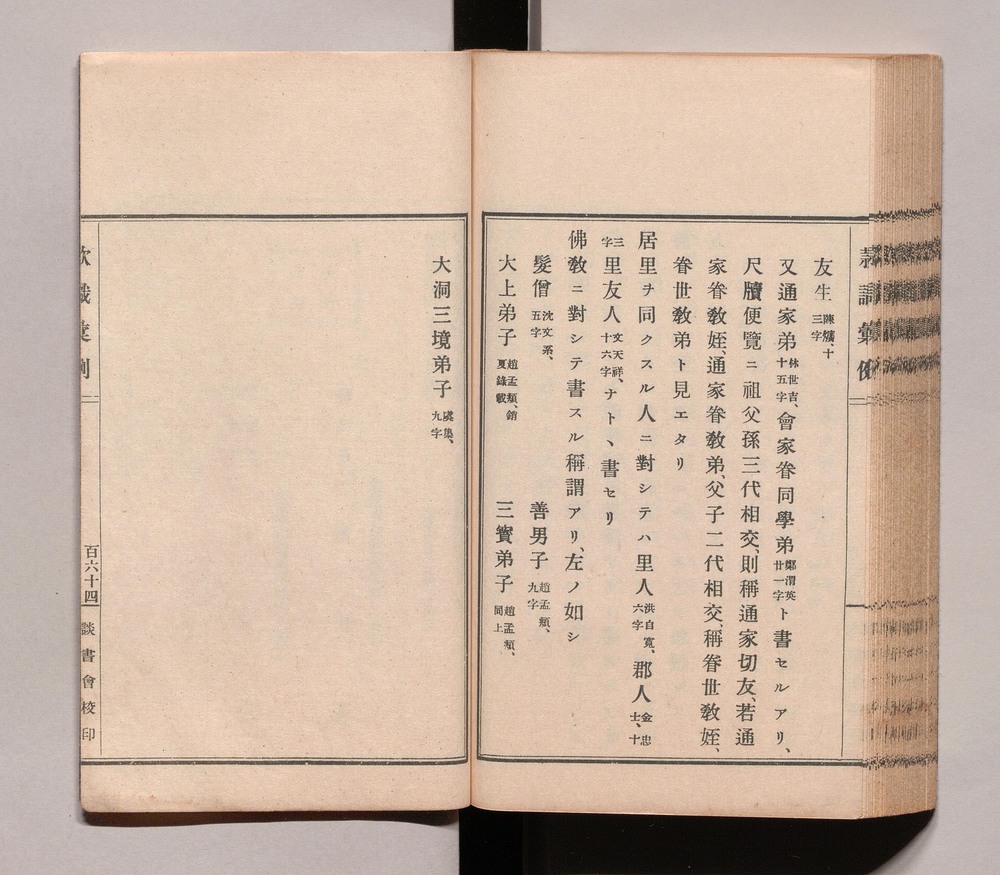 友生陳爌、十三字
又通家弟林世吉、十五字會家眷同學弟鄭渭英廿一字ト書セルアリ、
尺牘便覽ニ祖父孫三代相交、則稱通家切友、若通
家眷教姪、通家眷教弟、父子二代相交、稱眷世教姪、
眷世教弟ト見エタリ
居里ヲ同クスル人ニ對シテハ里人洪自寬、六字郡人金忠士、十
三字里友人文天祥、十六字ナト、書セリ
佛教ニ對シテ書スル稱謂アリ、左ノ如シ
髮僧沈文系、五字 善男子趙孟頫、九字
大上弟子趙孟頫、銷夏錄載 三寶弟子趙孟頫、同上
大洞三境弟子虞集、九字
款識彙例 二 百六十四 談書會校印